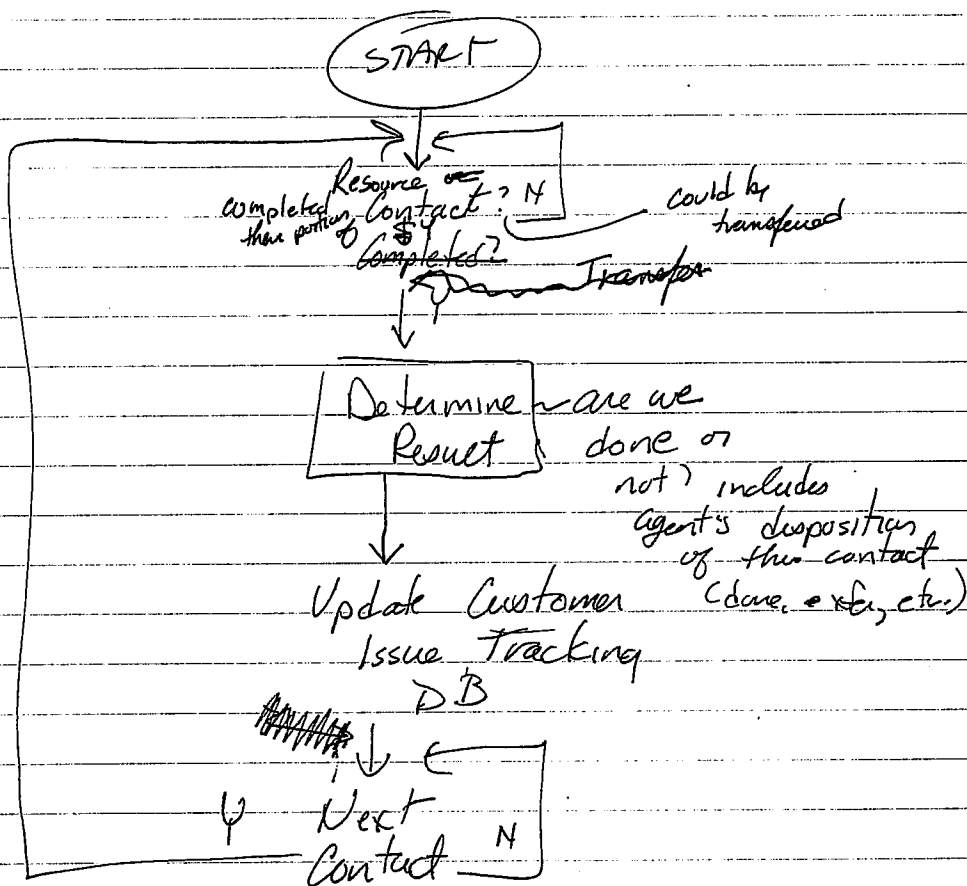 START
Resource
completed Contact? N
their portion of
Y
Completed?
could be
transferred
Transfer
Y
Determine ~ are we
Result done or
not? includes
agent's disposition
of this contact
(done, xfer, etc.)
Update Customer
Issue Tracking
DB
Y Next N
Contact